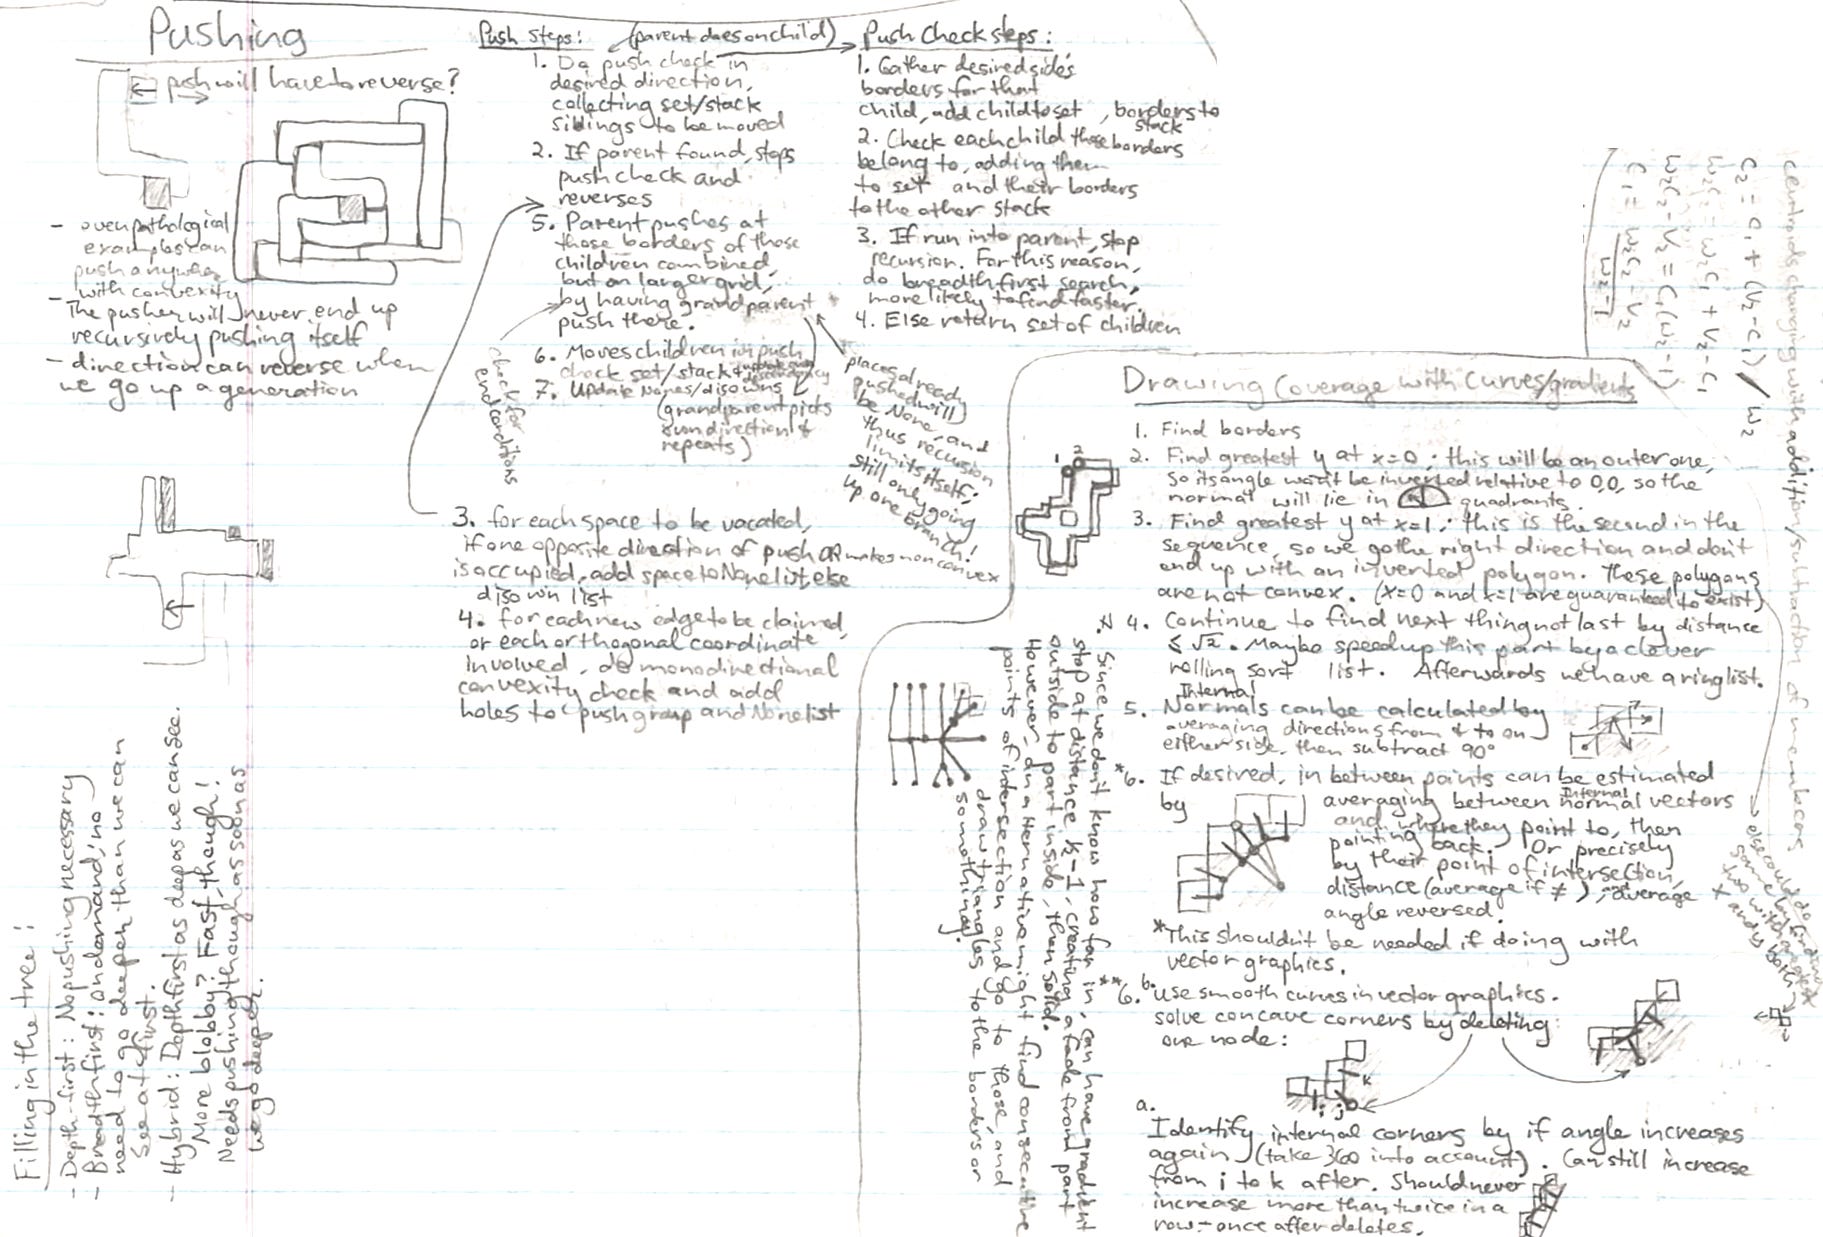 Pushing
push will have to reverse?
- even pathological
examples can
push anywhere
with convexity
- The pusher will never end up
recursively pushing itself
- direction can reverse when
we go up a generation
Push steps: (parent does on child)
1. Do push check in
desired direction,
collecting set/stack
siblings to be moved
2. If parent found, stops
push check and
reverses
5. Parent pushes at
those borders of those
children combined,
but on larger grid,
by having grandparent
push there.
6. Moves children in push
check set/stack + update any descendancy
7. Update Nones/disowns
(grandparent picks
own direction &
repeats)
check for
end conditions
places already
pushed will
be None, and
thus recursion
limits itself;
still only going
up one branch!
3. for each space to be vacated,
if one opposite direction of push OR makes non convex
is occupied, add space to None list else
disown list
4. for each new edge to be claimed,
or each orthogonal coordinate
involved, do monodirectional
convexity check and add
holes to push group and None list
Push Check steps:
1. Gather desired side's
borders for that
child, add child to set, borders to
stack
2. Check each child those borders
belong to, adding them
to set and their borders
to the other stack
3. If run into parent, stop
recursion. For this reason,
do breadth first search,
more likely to find faster.
4. Else return set of children
Filling in the tree:
- Depth-first: No pushing necessary
- Breadth first: on demand, no
need to go deeper than we can
see at first.
- Hybrid: Depth first as deep as we can see.
More blobby? Fast, though!
Needs pushing though as soon as
we go deeper.
centroids changing with addition/subtraction of members
c₂ = c₁ + (v₂ - c₁) / w₂
w₂c₂ = w₂c₁ + v₂ - c₁
w₂c₂ - v₂ = c₁(w₂ - 1)
c₁ = w₂c₂ - v₂
w₂ - 1
Drawing Coverage with curves/gradients
1. Find borders
2. Find greatest y at x=0; this will be an outer one,
so its angle won't be inverted relative to 0,0, so the
normal will lie in quadrants.
3. Find greatest y at x=1; this is the second in the
sequence, so we go the right direction and don't
end up with an inverted polygon. These polygons
are not convex. (x=0 and x=1 are guaranteed to exist)
4. Continue to find next thing not last by distance
≤ √2. Maybe speed up this part by a clever
rolling sort list. Afterwards we have a ring list.
Internal
5. Normals can be calculated by
averaging directions from & to on
either side, then subtract 90°
*6. If desired, in between points can be estimated
by averaging between Internal normal vectors
and where they point to, then
pointing back. Or precisely
by their point of intersection,
distance (average if ≠), and average
angle reversed.
*This shouldn't be needed if doing with
vector graphics.
**6. b. Use smooth curves in vector graphics.
solve concave corners by deleting
one node:
i j k
a.
Identify internal corners by if angle increases
again (take 360 into account). Can still increase
from i to k after. Should never
increase more than twice in a
row - once after deletes.
Since we don't know how far in, can have gradient
stop at distance k-1, creating a fade from part
outside to part inside, then solid.
However, an alternative might find consecutive
points of intersection and go to those, and
draw triangles to the borders or
something.